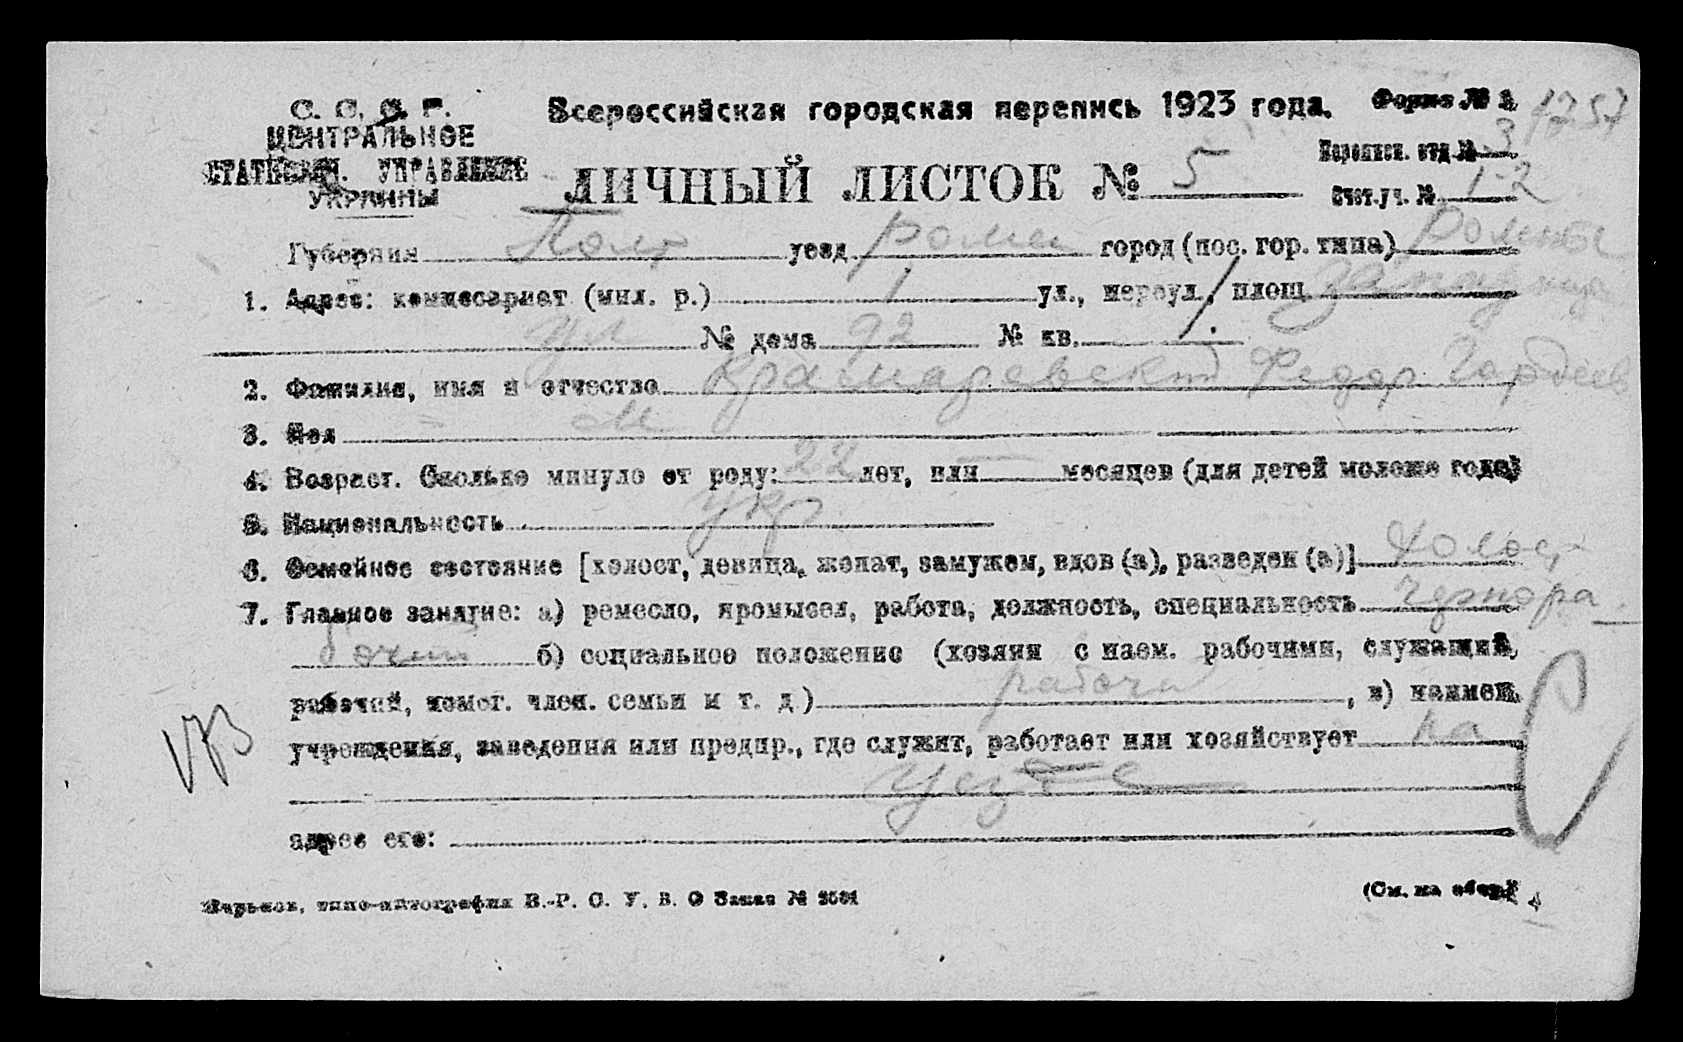 С. С. С. Р.
ЦЕНТРАЛЬНОЕ
СТАТИСТИЧ. УПРАВЛЕНИЕ
УКРАИНЫ
Всероссийская городская перепись 1923 года.
Форма № 1257
ЛИЧНЫЙ ЛИСТОК № 5
Переписн. отд. № 3
Счет. уч. № 1-2
Губерния Полт уезд Ромен город (пос. гор. типа) Ромны
1. Адрес: комиссариат (мил. р.) 1 ул., переул., площ
ул № дома 92 № кв. 1.
2. Фамилия, имя и отчество Крамаревский Федор Гордеев
3. Пол М
4. Возраст. Сколько минуло от роду: 22 лет, или — месяцев (для детей моложе года)
5. Национальность укр
6. Семейное состояние [холост, девица, женат, замужем, вдов (а), разведен (а)] Холост
7. Главное занятие: а) ремесло, промысел, работа, должность, специальность чернора
бочий б) социальное положение (хозяин с наем. рабочими, служащий,
рабочий, помог. член. семьи и т. д.) рабочий, в) наимен.
учреждения, заведения или предпр., где служит, работает или хозяйствует на
173
адрес его:
Харьков, типо-литография В.-Р. С. У. В. О Заказ №
(См. на обор.)